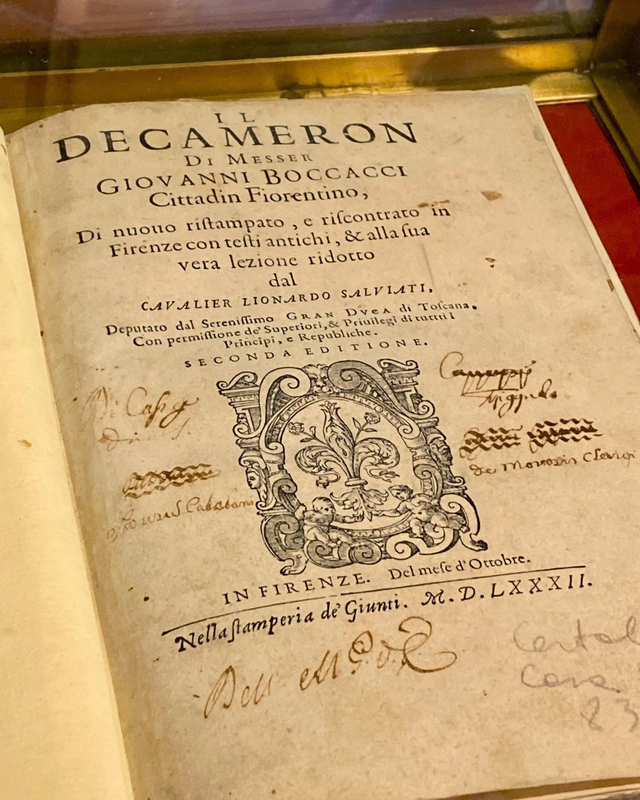 IL
DECAMERON
DI MESSER
GIOVANNI BOCCACCI
Cittadin Fiorentino,
Di nuouo ristampato, e riscontrato in
Firenze con testi antichi, & alla sua
vera lezione ridotto
dal
CAVALIER LIONARDO SALVIATI,
Deputato dal Serenissimo GRAN DVCA di Toscana,
Con permissione de' Superiori, & Priuilegi di tuttti i
Principi, e Republiche.
SECONDA EDITIONE.
IN FIRENZE. Del mese d'Ottobre.
Nella stamperia de' Giunti. M. D. LXXXII.
Dell